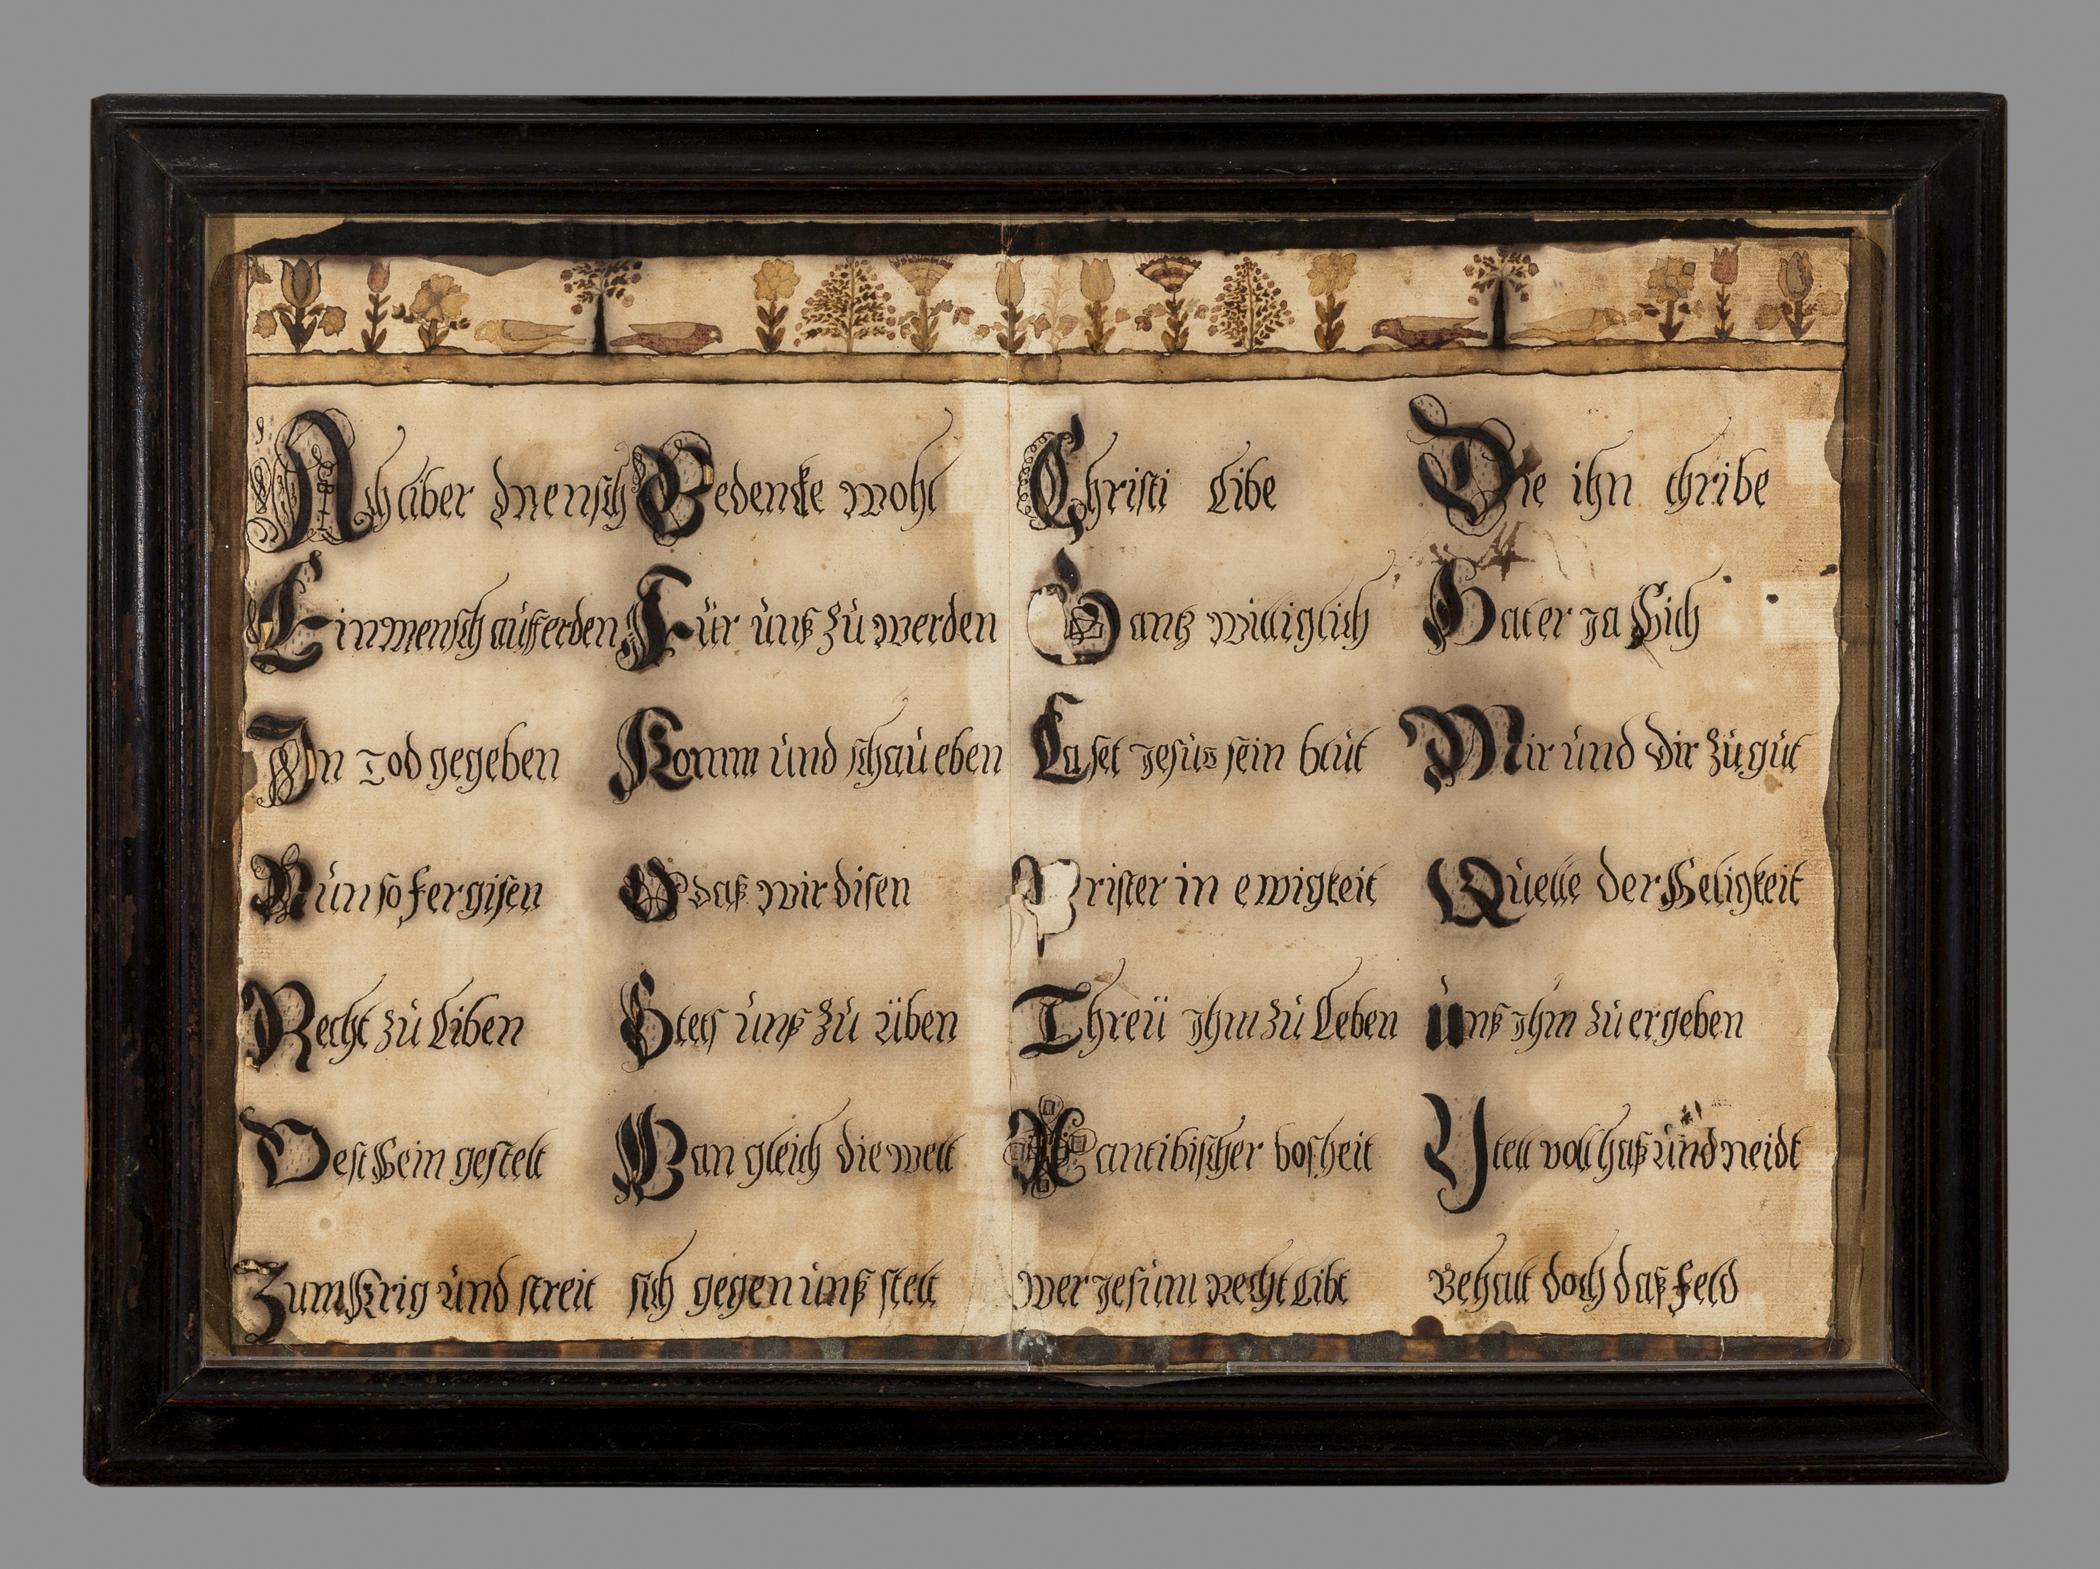 Ach liber mensch Bedencke wohl Christi Libe Die ihn thribe
Ein mensch auff erden Für unß zu werden Gantz williglich Hat er ja Sich
In Tod gegeben Komm und schau eben Laset Jesus sein blut Mir und dir zu gut
Nun so fergisen O daß wir disen Prister in ewigkeit Quelle der Seligkeit
Recht zu Liben Stets unß zu üben Threü ihm zu Leben unß ihm zu ergeben
Vest Sein gestelt Wan gleich die welt Xantibischer bosheit Ytell voll haß und neidt
Zum Krig und streit sich gegen unß stelt wer Jesum Recht Libt Behalt doch daß feld